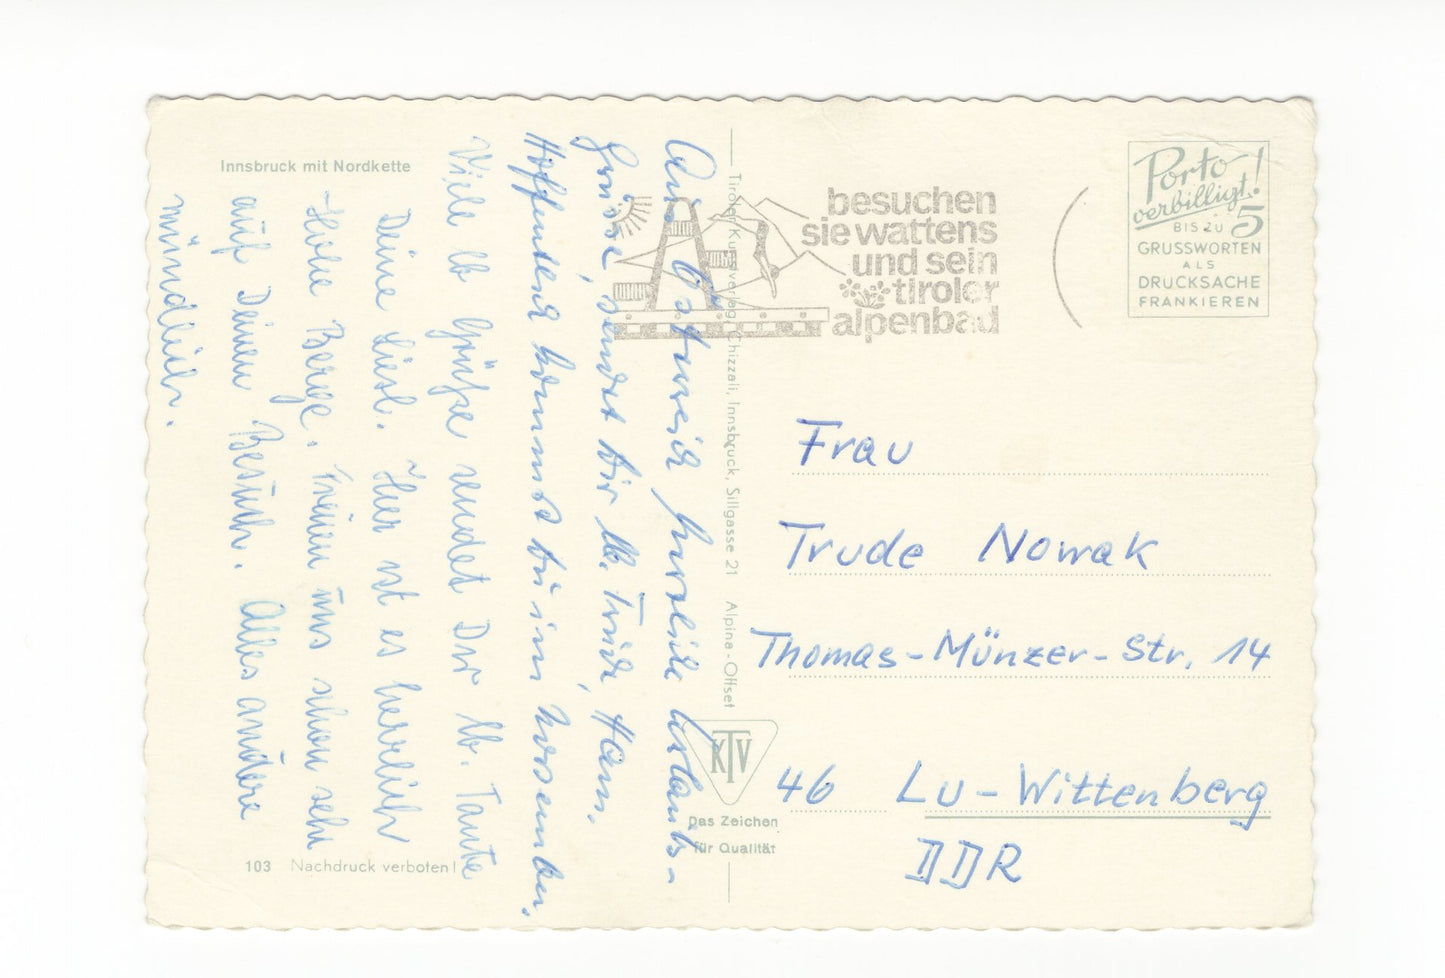 Innsbruck mit Nordkette
Aus Österreich herzliche Urlaubs-
grüsse, sendet dir lb. Trude, Hann.
Hoffentlich kommst du im November.
Viele lb Grüße sendet Dir lb. Tante
Deine Liesl. Hier ist es herrlich
Hohe Berge. Freuen uns schon sehr
auf Deinen Besuch. Alles andere
mündlich.
103 Nachdruck verboten!
Tiroler Kunstverlag Chizzali, Innsbruck, Sillgasse 21 Alpina-Offset
KTV
Das Zeichen
für Qualität
besuchen
sie wattens
und sein
tiroler
alpenbad
Porto
verbilligt!
BIS ZU 5
GRUSSWORTEN
ALS
DRUCKSACHE
FRANKIEREN
Frau
Trude Nowak
Thomas-Münzer-Str. 14
46 Lu-Wittenberg
DDR